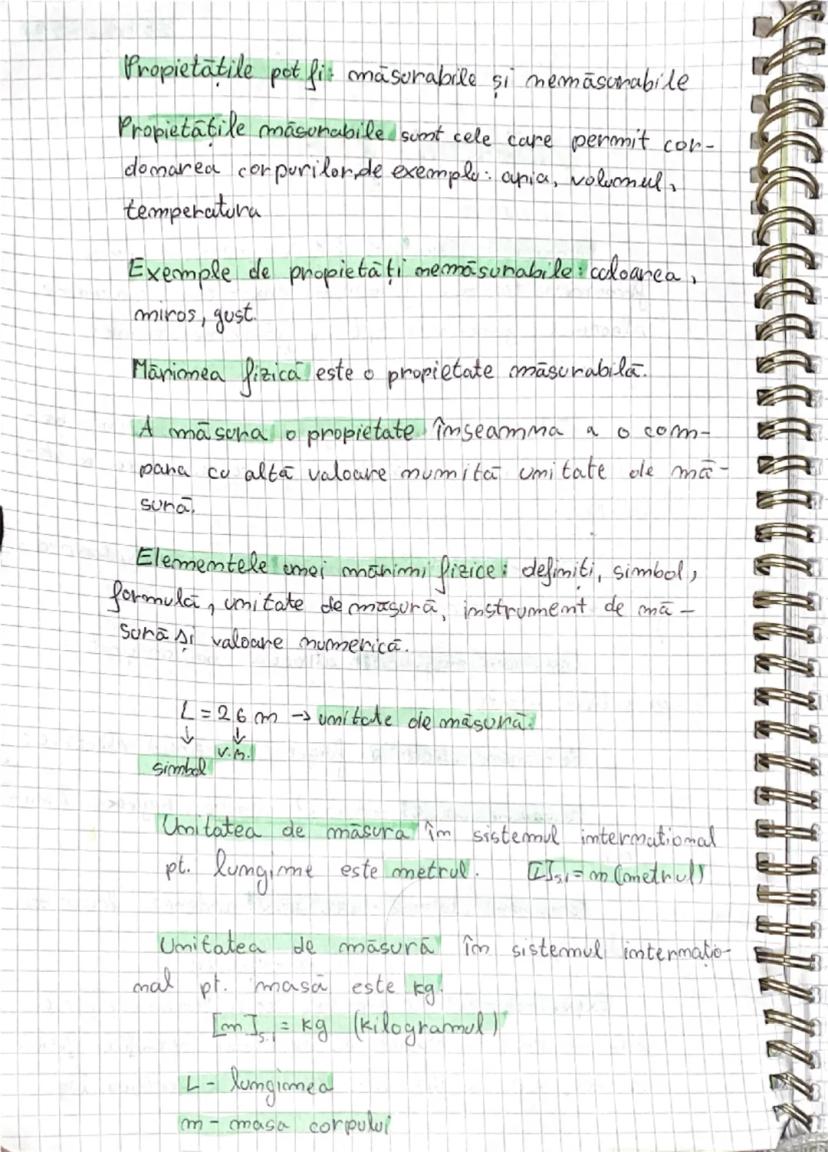 Propietățile pot fi: măsurabile și nemăsurabile
Propietățile măsurabile sunt cele care permit cor-
donarea corpurilor, de exemplu: aria, volumul,
temperatura
Exemple de propietăți nemăsurabile: culoarea,
miros, gust.
Mărimea fizică este o propietate măsurabilă.
A măsura o propietate înseamna a o com-
para cu altă valoare numită unitate de mă-
sură.
Elementele unei mărimi fizice: definiți, simbol,
formulă, unitate de măsură, instrument de mă-
sură și valoare numerică.
L = 26 m → unitate de măsură
↓ ↓
v.n.
simbol
Unitatea de măsura în sistemul internațional
pt. lungime este metrul. [L]S.I = m (metrul)
Unitatea de măsură în sistemul internațio-
nal pt. masă este kg.
[m]S.I = kg (kilogramul)
L - lungimea
m - masa corpului